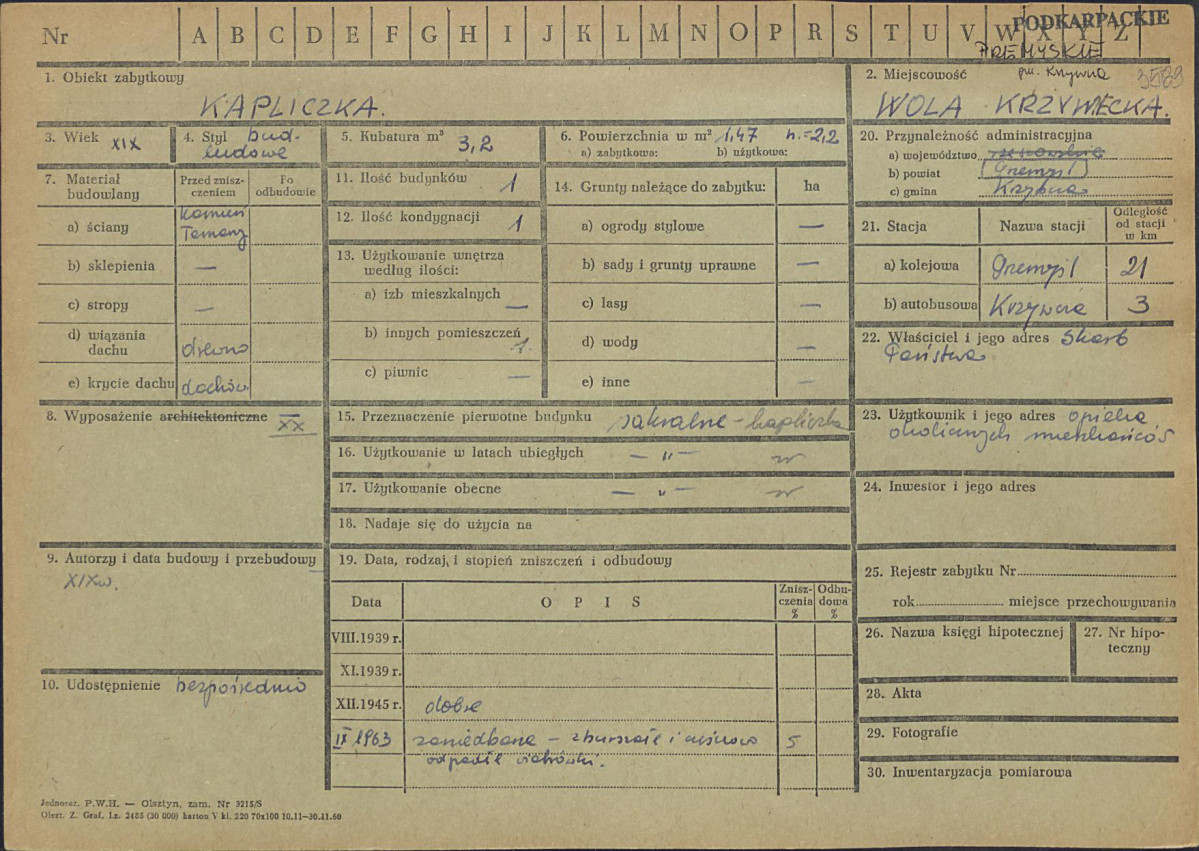 PODKARPACKIE
Nr A B C D E F G H I J K L M N O P R S T U V W X Y Z
PRZEMYSKIE
pow. Krzywcza
3589
1. Obiekt zabytkowy
KAPLICZKA.
2. Miejscowość
WOLA KRZYWIECKA.
3. Wiek XIX
4. Styl bud-
ludowe
5. Kubatura m³ 3,2
6. Powierzchnia w m² 1,47 h.=2,2
a) zabytkowa: b) użytkowa:
7. Materiał budowlany
Przed zniszczeniem
Po odbudowie
a) ściany kamień
b) sklepienia —
c) stropy —
d) wiązania dachu drewno
e) krycie dachu dachów
8. Wyposażenie architektoniczne XX
9. Autorzy i data budowy i przebudowy
XIXw.
10. Udostępnienie bezpośrednio
11. Ilość budynków 1
12. Ilość kondygnacji 1
13. Użytkowanie wnętrza
według ilości:
a) izb mieszkalnych —
b) innych pomieszczeń 1.
c) piwnic —
14. Grunty należące do zabytku: ha
a) ogrody stylowe —
b) sady i grunty uprawne —
c) lasy —
d) wody —
e) inne —
15. Przeznaczenie pierwotne budynku sakralne - kapliczka
16. Użytkowanie w latach ubiegłych — " —
17. Użytkowanie obecne — " —
18. Nadaje się do użycia na
19. Data, rodzaj, i stopień zniszczeń i odbudowy
Data OPIS Zniszczenia % Odbudowa %
VIII.1939 r.
XI.1939 r.
XII.1945 r. dobre
IX 1963 zaniedbane - 5
odpadł
20. Przynależność administracyjna
a) województwo rzeszowskie
b) powiat Przemyśl
c) gmina Krzywcza
21. Stacja Nazwa stacji Odległość od stacji w km
a) kolejowa Przemyśl 21
b) autobusowa Krzywcza 3
22. Właściciel i jego adres Skarb
Państwa
23. Użytkownik i jego adres opieka
okolicznych mieszkańców
24. Inwestor i jego adres
25. Rejestr zabytku Nr
rok miejsce przechowywania
26. Nazwa księgi hipotecznej
27. Nr hipo-
teczny
28. Akta
29. Fotografie
30. Inwentaryzacja pomiarowa
Jednoraz. P.W.H. — Olsztyn, zam. Nr 3215/S
Olszt. Z. Graf. Lz. 2485 (30 000) karton V kl. 220 70x100 10.11—30.11.60